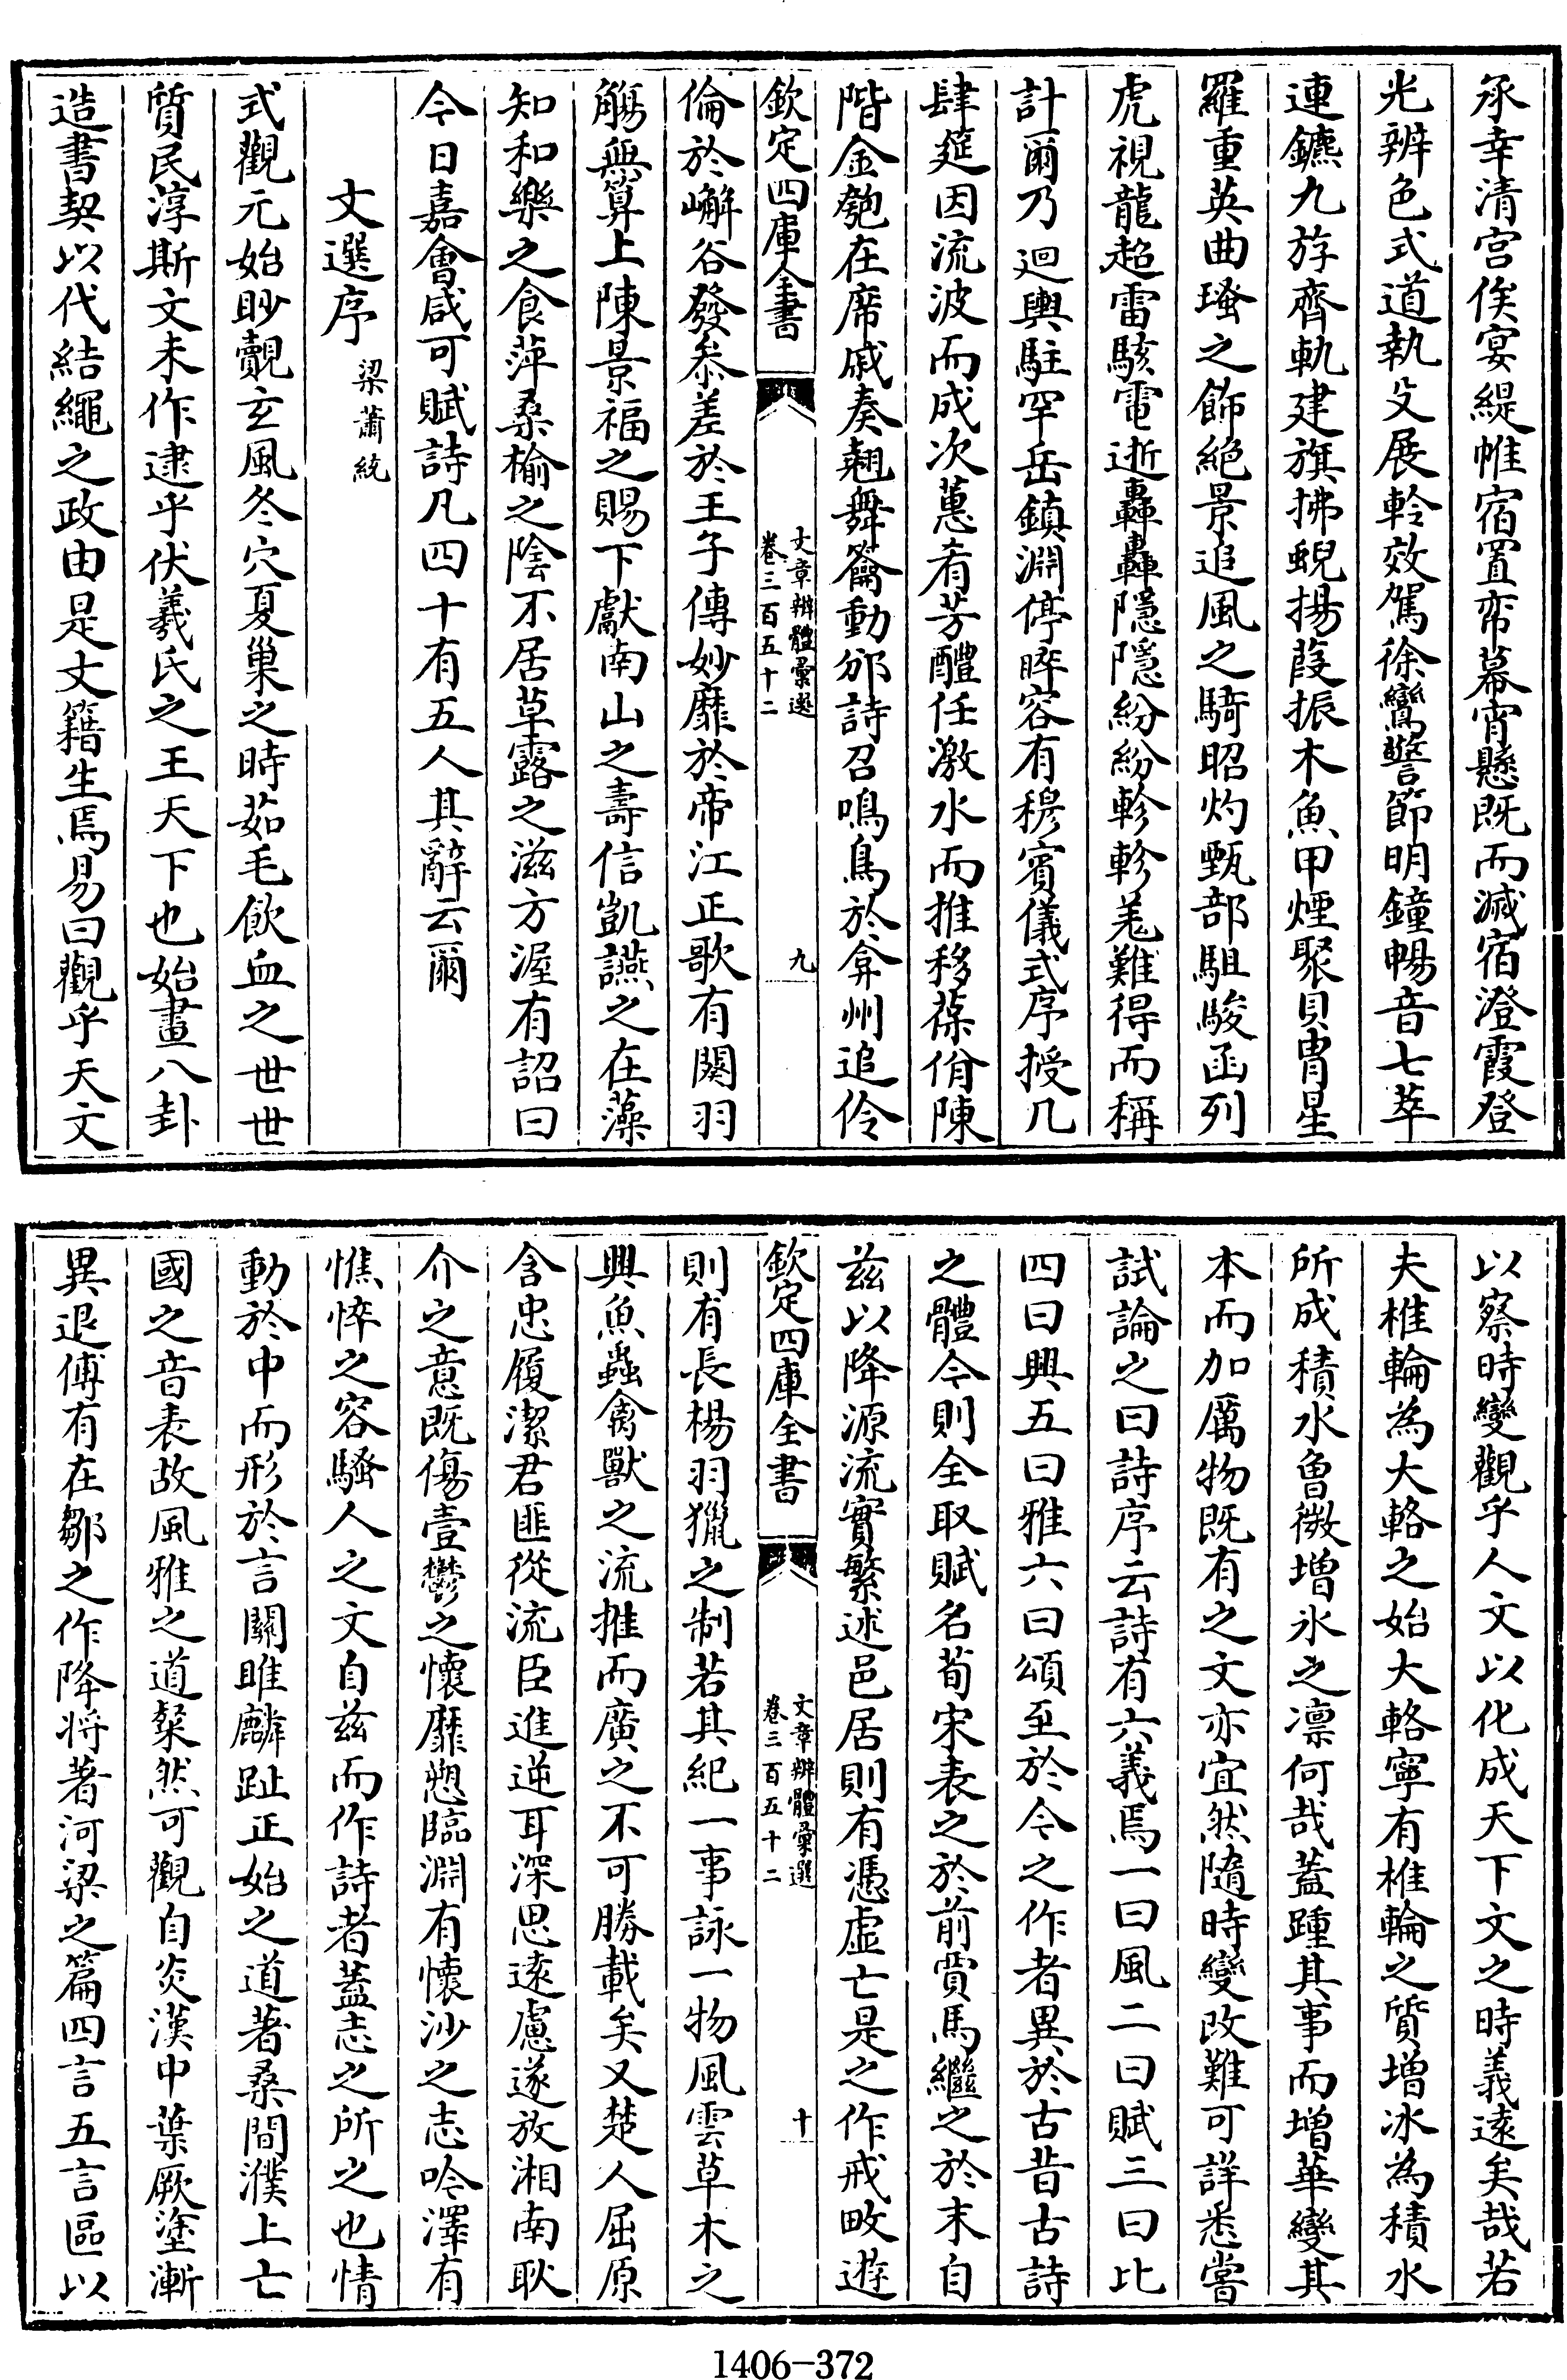 承幸清宫俟宴緹帷宿置帟幕宵懸既而滅宿澄霞登
光辨色式道執殳展軨效駕徐鸞警節明鐘暢音七萃
連鑣九斿齊軌建旗拂蜺揚葭振木魚甲煙聚貝胄星
羅重英曲瑵之飾絶景追風之騎昭灼甄部駔駿函列
虎視龍超雷駭電逝轟轟隱隱紛紛軫軫羌難得而稱
計爾乃迴輿駐罕岳鎮淵停睟容有穆賓儀式序授几
肆筵因流波而成次蕙肴芳醴任激水而推移葆佾陳
階金匏在席戚奏翹舞籥動邠詩召鳴鳥於弇州追伶
欽定四庫全書
文章辨體彙選
卷三百五十二
九
倫於嶰谷發叅差於王子傳妙靡於帝江正歌有闋羽
觴無算上陳景福之賜下獻南山之壽信凱讌之在藻
知和樂之食苹桑榆之陰不居草露之滋方渥有詔曰
今日嘉會咸可賦詩凡四十有五人其辭云爾
文選序
梁蕭統
式觀元始眇覿玄風冬穴夏巢之時茹毛飲血之世世
質民淳斯文未作逮乎伏羲氏之王天下也始畫八卦
造書契以代結繩之政由是文籍生焉易曰觀乎天文
以察時變觀乎人文以化成天下文之時義遠矣哉若
夫椎輪為大輅之始大輅寧有椎輪之質增冰為積水
所成積水曾微增氷之凛何哉蓋踵其事而增華變其
本而加厲物既有之文亦宜然隨時變改難可詳悉嘗
試論之曰詩序云詩有六義焉一曰風二曰賦三曰比
四曰興五曰雅六曰頌至於今之作者異於古昔古詩
之體今則全取賦名荀宋表之於前賈馬繼之於末自
兹以降源流實繁述邑居則有憑虚亡是之作戒畋遊
欽定四庫全書
文章辨體彙選
卷三百五十二
十
則有長楊羽獵之制若其紀一事詠一物風雲草木之
興魚蟲禽獸之流推而廣之不可勝載矣又楚人屈原
含忠履潔君匪從流臣進逆耳深思逺慮遂放湘南耿
介之意既傷壹鬱之懷靡愬臨淵有懷沙之志吟澤有
憔悴之容騷人之文自兹而作詩者蓋志之所之也情
動於中而形於言關雎麟趾正始之道著桑間濮上亡
國之音表故風雅之道粲然可觀自炎漢中葉厥塗漸
異退傅有在鄒之作降將著河梁之篇四言五言區以
1406-372